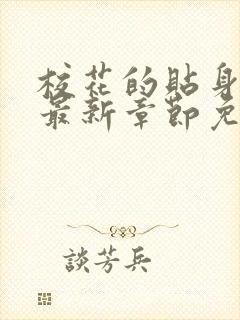 校花的貼身
最新章節免
談芳兵